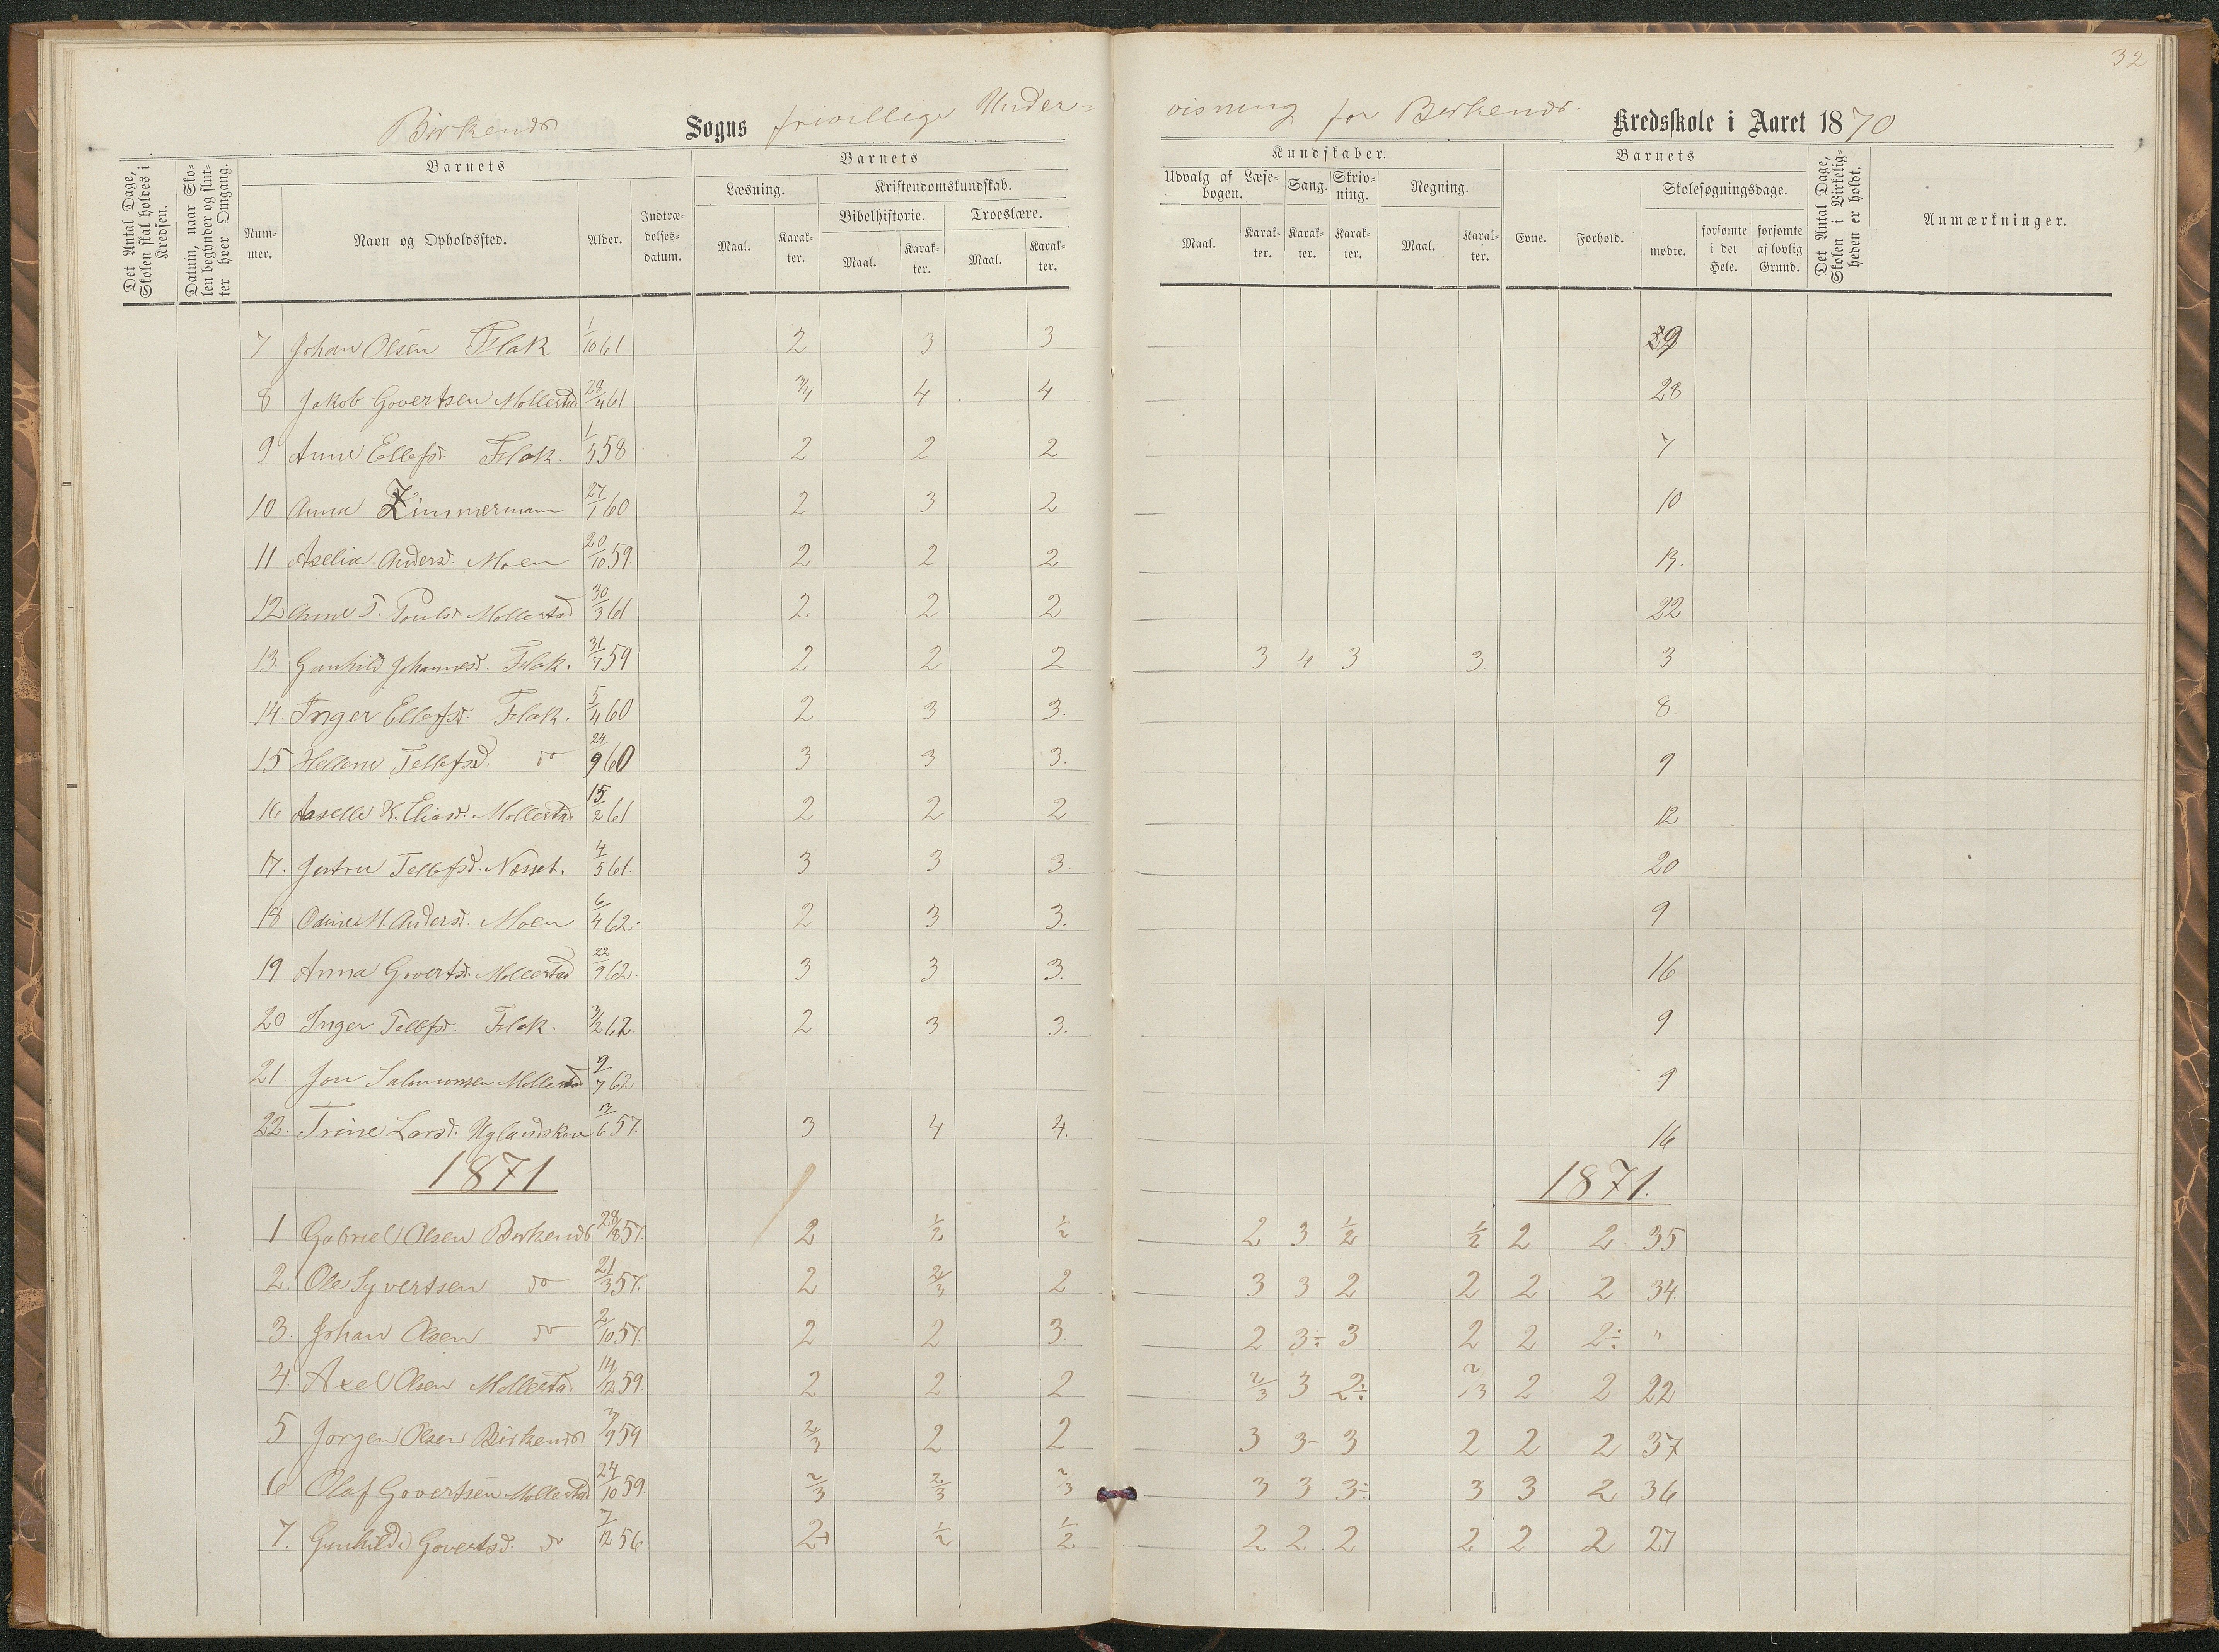 32
Birkenæs Sogns frivillige Under= visning for Birkenæs Kredsskole i Aaret 1870
Det Antal Dage, Skolen skal holdes i Kredsen.
Datum, naar Skolen begynder og slutter hver Omgang.
Barnets
Nummer.
Navn og Opholdssted.
Alder.
Indtrædelsesdatum.
Barnets
Læsning.
Kristendomskundskab.
Bibelhistorie.
Troeslære.
Maal. Karakter. Maal. Karakter. Maal. Karakter.
Kundskaber.
Udvalg af Læsebogen. Sang. Skrivning. Regning.
Maal. Karakter. Karakter. Karakter. Maal. Karakter.
Barnets
Evne. Forhold.
Skolesøgningsdage.
mødte. forsømte i det Hele. forsømte af lovlig Grund.
Det Antal Dage, Skolen i Virkeligheden er holdt.
Anmærkninger.
7 Johan Olsen Flak 1/10 61 2 3 3
8 Jakob Govertsen Mollestad 61 3/4 4 4 28
9 Anne Ellefsd. Flak 1/5 58 2 2 2 7
10 Anna Zimmermann 27/1 60 2 3 2 10
11 Aselia Andersd. Moen 20/10 59. 2 2 2 13.
12 Anne T. Poulsd. Mollestad 30/3 61 2 2 2 22
13. Gunhild Johannesd. Flak. 31/7 59 2 2 2 3 4 3 3. 3
14. Inger Ellefsd. Flak. 5/4 60 2 3 3. 8
15 Hellene Tellefsd. do 24/9 60 3 3 3. 9
16 Aaselle K. Eliasd. Mollestad 15/2 61 2 2 2 12
17. Jertru Tellefsd. Næsset. 4/5 61. 3 3 3. 20
18 Odine M. Andersd. Moen 6/4 62. 2 3 3. 9
19 Anna Govertsd. Mollestad 22/9 62. 3 3 3. 16
20 Inger Tellefsd. Flak. 3/2 62. 2 3 3. 9
21 Jon Salomonsen Mollestad 9/7 62 9
22. Trine Larsd. Uglandskov 57. 3 4 4. 16
1871 1871.
1 Gabriel Olsen Birkenæs 28/8 57. 2 1/2 1/2 2 3 1/2 1/2 2 2 35
2. Ole Syvertsen do 21/3 57. 2 2/3 2 3 3 2 2 2 2 34.
3. Johan Olsen do 2/10 57. 2 2 3. 2 3÷ 3 2 2 2÷ "
4. Axel Olsen Mollestad 14/12 59. 2 2 2 2/3 3 2÷ 2/3 2 2 22
5 Jørgen Olsen Birkenæs 3/9 59 2/3 2 2 3 3- 3 2 2 2 37
6 Olaf Govertsen Mollestad 24/10 59. 2/3 2/3 2/3 3 3 3÷ 3 3 2 36
7. Gunhild Govertsd. do 7/12 56 2+ 1/2 1/2 2 2 2 2 2 2 27